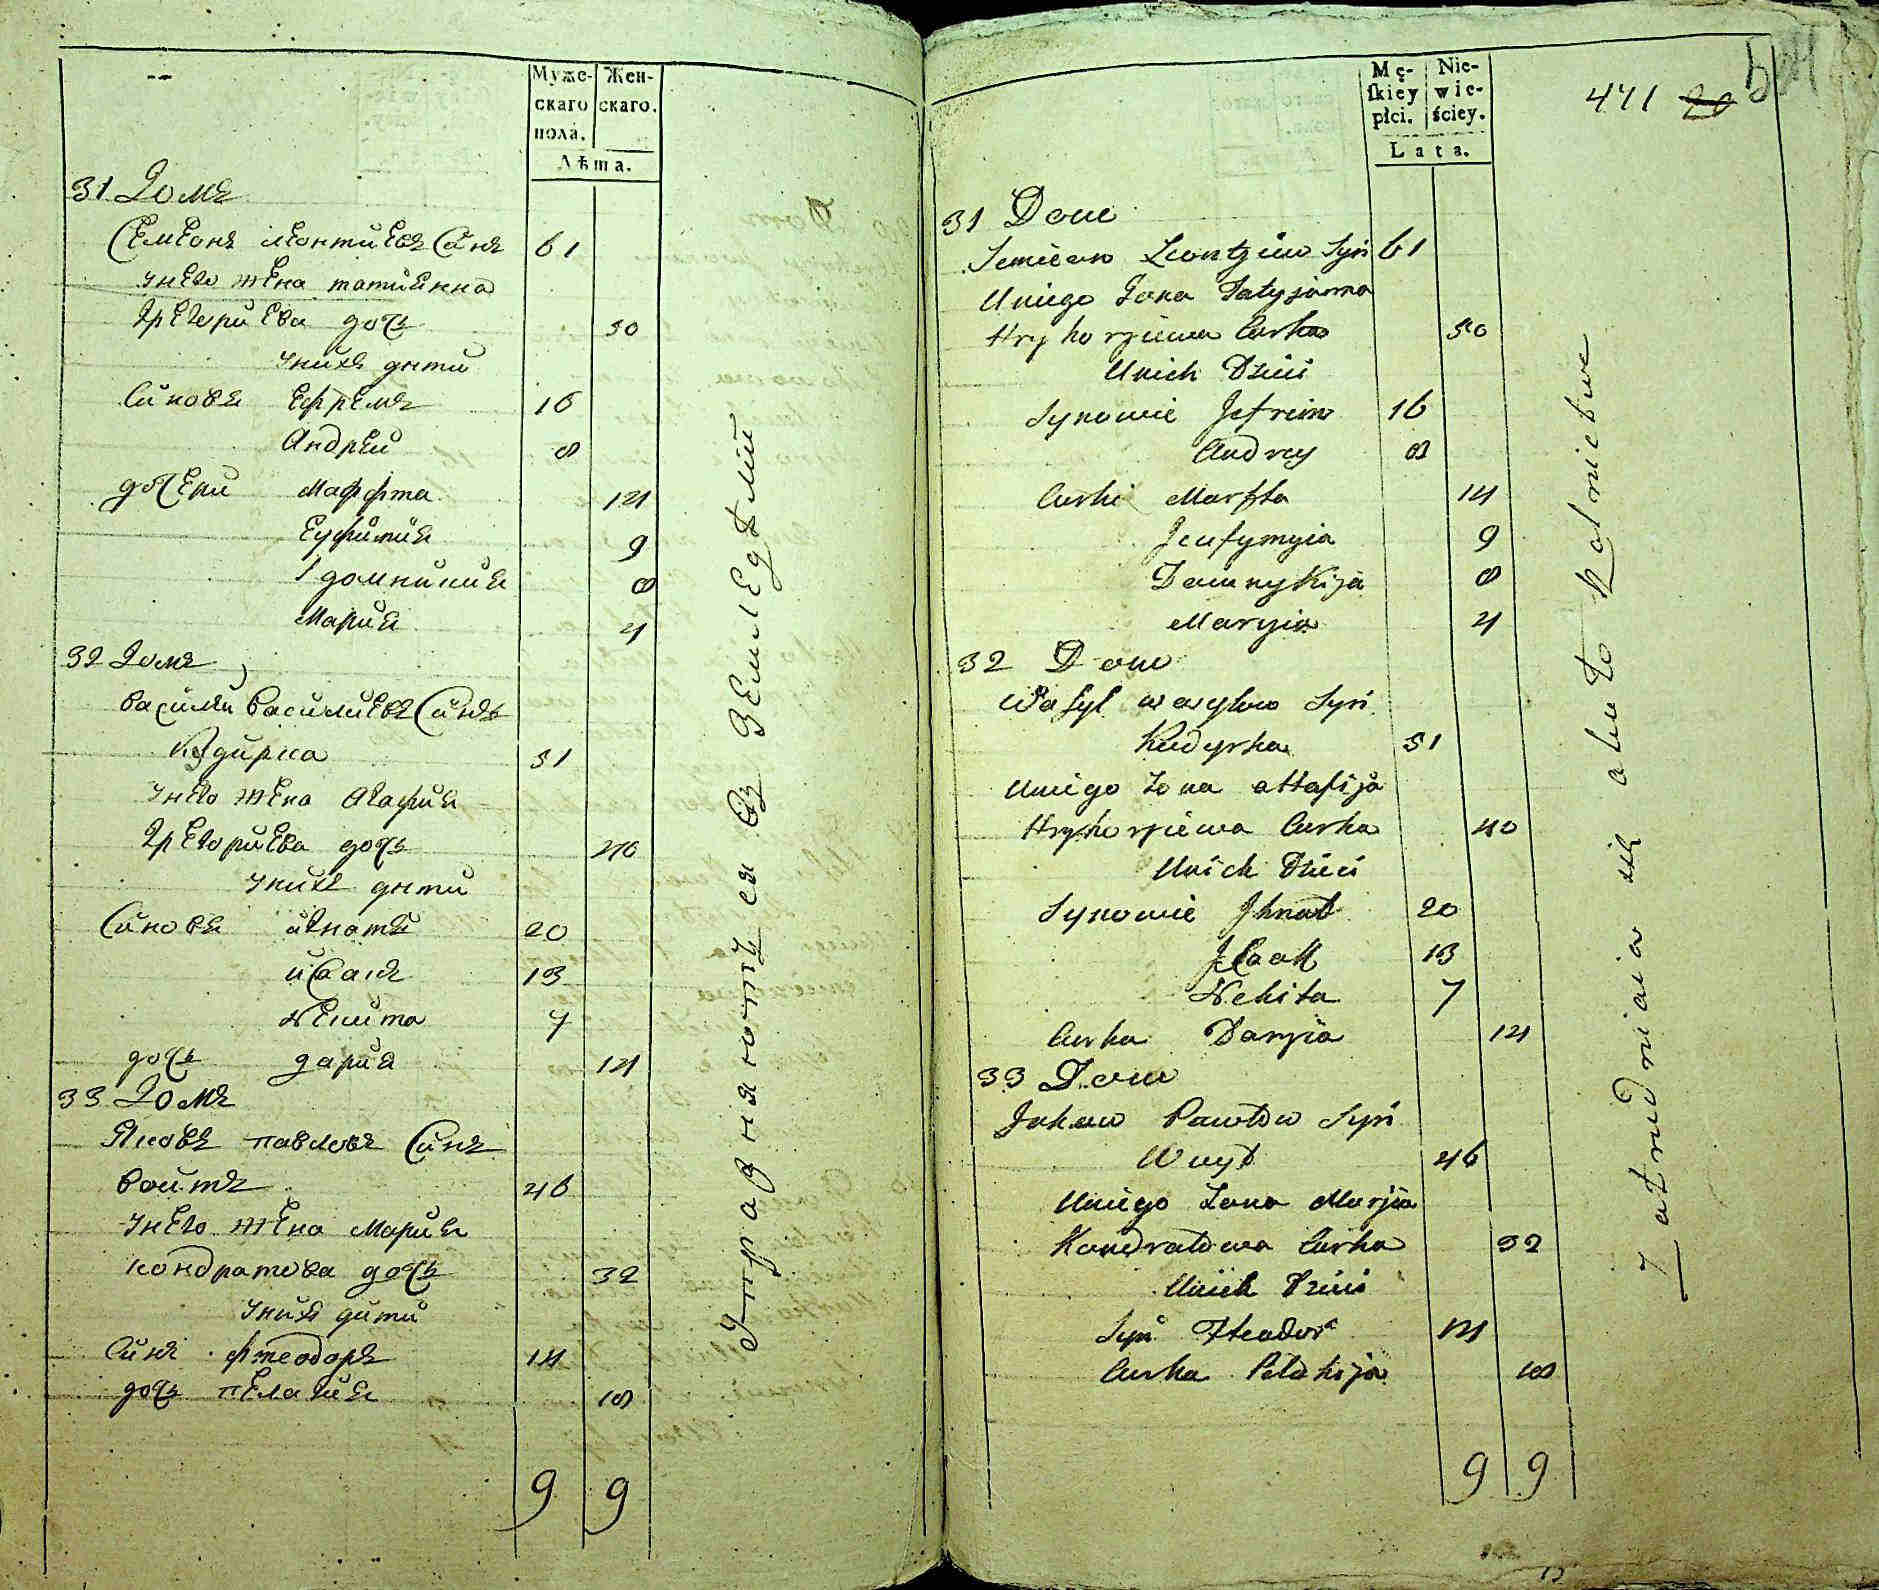 Муже- Жен-
скаго скаго.
пола.
Лѣта.
31 Домъ
Семіонъ Леонтиевъ Синъ 61
Унего жена татиянна
Грегориева дочь 50
Унихъ дѣти
Синовья Ефремъ 16
Андрей 8
дочери Марфта 14
Еуфимия 9
домникия 8
Мария 4
32 Домъ
Василий Василиевъ Синъ
Кудирка 51
Унего жена Агафия
Грегориева дочь 40
Унихъ дѣти
Синовья игнатей 20
исакъ 13
Некита 7
дочь дария 14
33 Домъ
Яковъ павловъ Синъ
Воитъ 46
Унего жена Мария
кондратова дочь 32
Унихъ дити
Синъ фтеодоръ 14
дочь пелагия 18
9 9
Упражняются въ Земледѣлии
Mę- Nie-
ſkiey wie-
płci. ściey.
Lata.
471 20
31 Dom
Semieon Leontjiew Syn 61
Uniego Żona Tatyjanna
Hryhorjiewa Curka 50
Unich Dzieci
Synowie Jefrem 16
Andrey 8
Curki Marfta 14
Jeufymyia 9
Domnykija 8
Maryia 4
32 Dom
Wasyl wasylew Syn
Kudyrka 51
Uniego Żona aHafija
Hryhorjiewa Curka 40
Unich Dzieci
Synowie Jhnat 20
Jsaak 13
Nekita 7
Curka Darjia 14
33 Dom
Jakow Pawłow Syn
Wuyt 46
Uniego Żona Marjia
Kondratowa Curka 32
Unich Dzieci
Syn Fteodor 14
Curka Pelahija 18
9 9
Zatrudniaia się w Rolnictwe